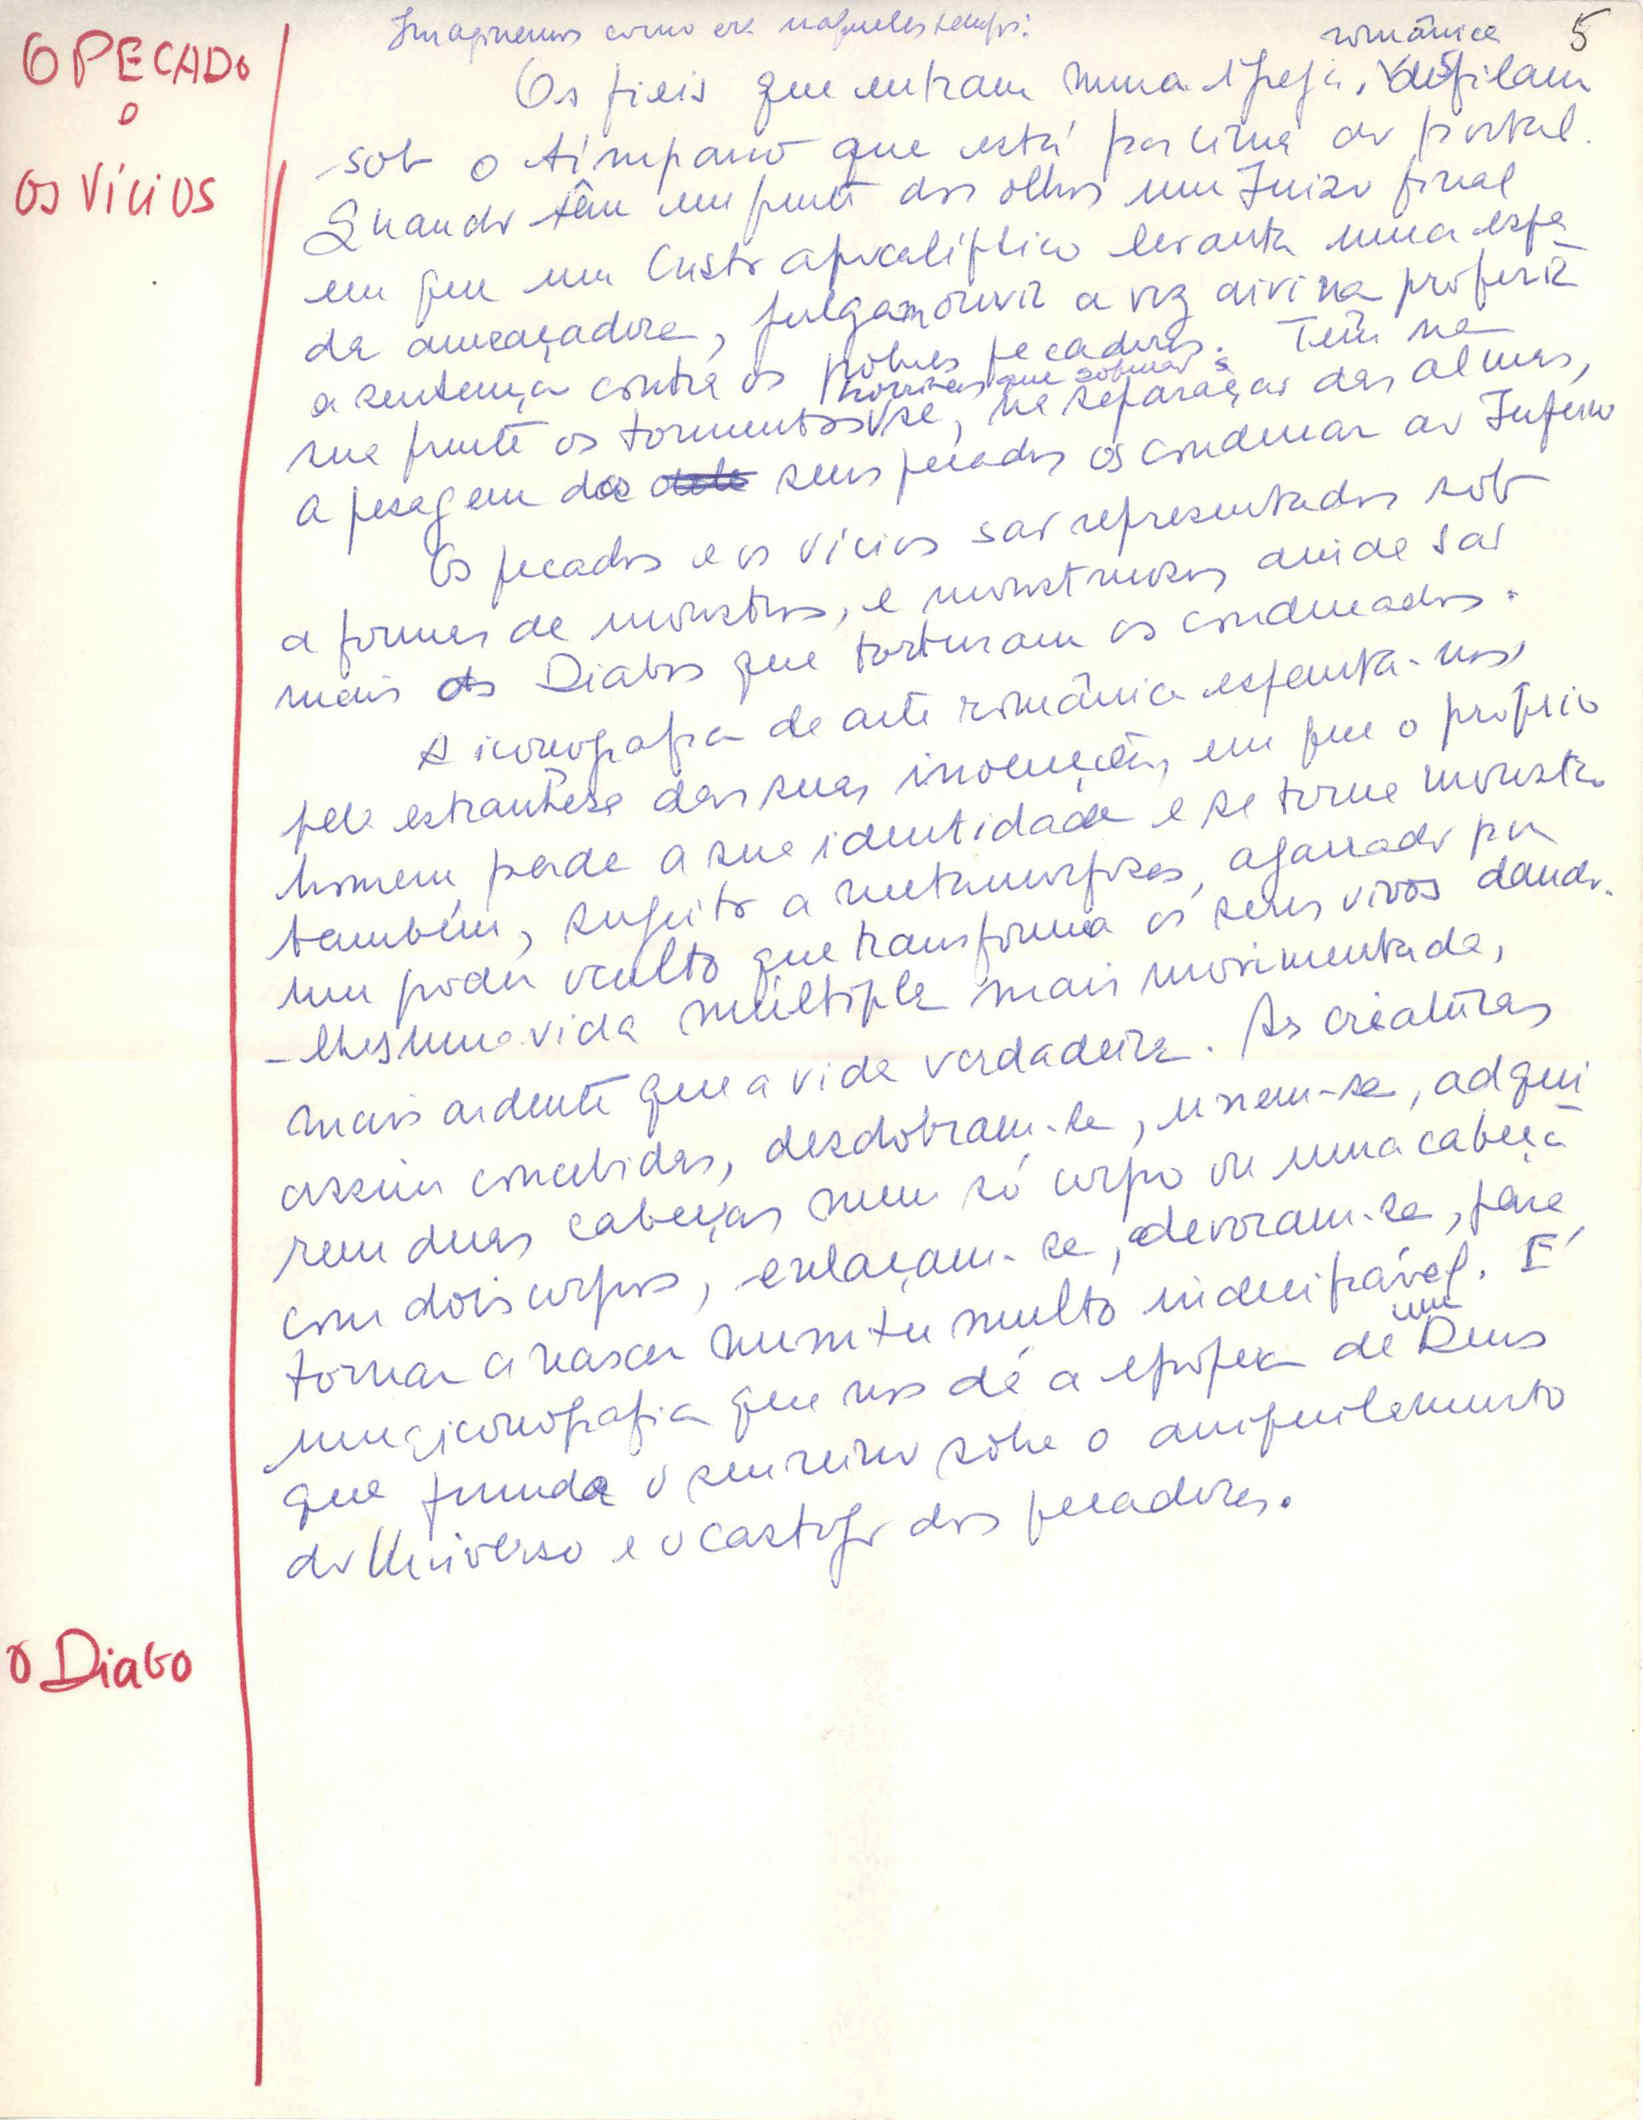 Imaginemos como era naqueles tempos:
românica 5
O PECADO
e
OS VÍCIOS
Os fieis que entram numa igreja, desfilam
sob o tímpano que está por cima do portal.
Quando têm em frente dos olhos um Juizo final
em que um Cristo apocalíptico levanta uma espa
da ameaçadora, julgam ouvir a voz divina proferir
a sentença contra os pobres pecadores. Têm na
horríveis que sofrerão
sua frente os tormentos se, na separação das almas,
a pesagem dos seus pecados os condenar ao Inferno
Os pecados e os vícios são representados sob
a forma de monstros, e monstruosos ainda são
mais os Diabos que torturam os condenados.
A iconografia da arte românica espanta-nos,
pela estranheza das suas invenções, em que o próprio
homem perde a sua identidade e se torna monstro
também, sujeito a metamorfoses, agarrado por
um poder oculto que transforma os seres vivos dando-
-lhes uma vida múltipla mais movimentada,
mais ardente que a vida verdadeira. As criaturas
assim concebidas, desdobram-se, unem-se, adqui
rem duas cabeças num só corpo ou uma cabeça
com dois corpos, enlaçam-se, devoram-se, para
tornar a nascer num tumulto indecifrável. É
uma iconografia que nos dá a epopeia de um Deus
que funda o seu reino sobre o aniquilamento
do Universo e o castigo dos pecadores.
O DIABO